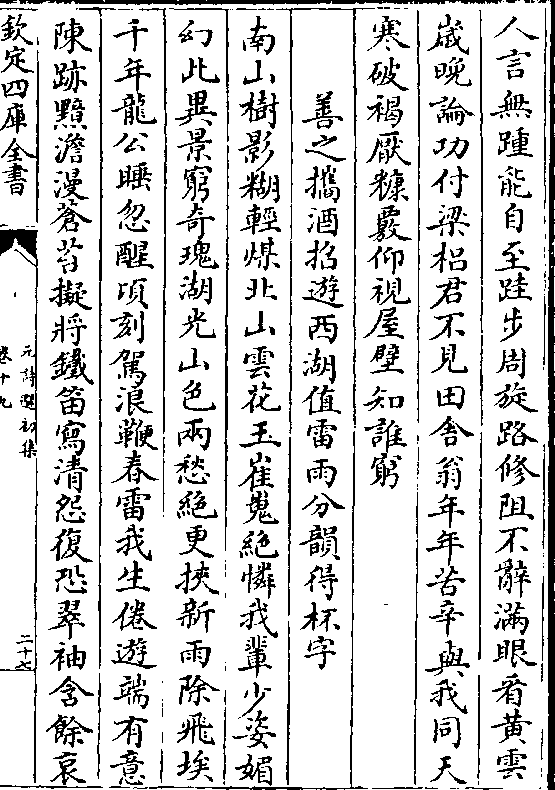 人言無踵能自至跬步周旋路修阻不辭滿眼看黄雲
嵗晚論功付梁梠君不見田舍翁年年苦辛與我同天
寒破褐厭糠覈仰視屋壁知誰窮
善之攜酒招遊西湖值雷雨分韻得杯字
南山樹影糊輕煤北山雲花玉崔嵬絶憐我輩少姿媚
幻此異景窮奇瑰湖光山色兩愁絶更挾新雨除飛埃
千年龍公睡忽醒頃刻駕浪鞭春雷我生倦遊端有意
陳跡黯澹漫蒼苔擬將鐵笛寫清怨復恐翠袖含餘哀
欽定四庫全書
元詩選初集
卷十九
二十七